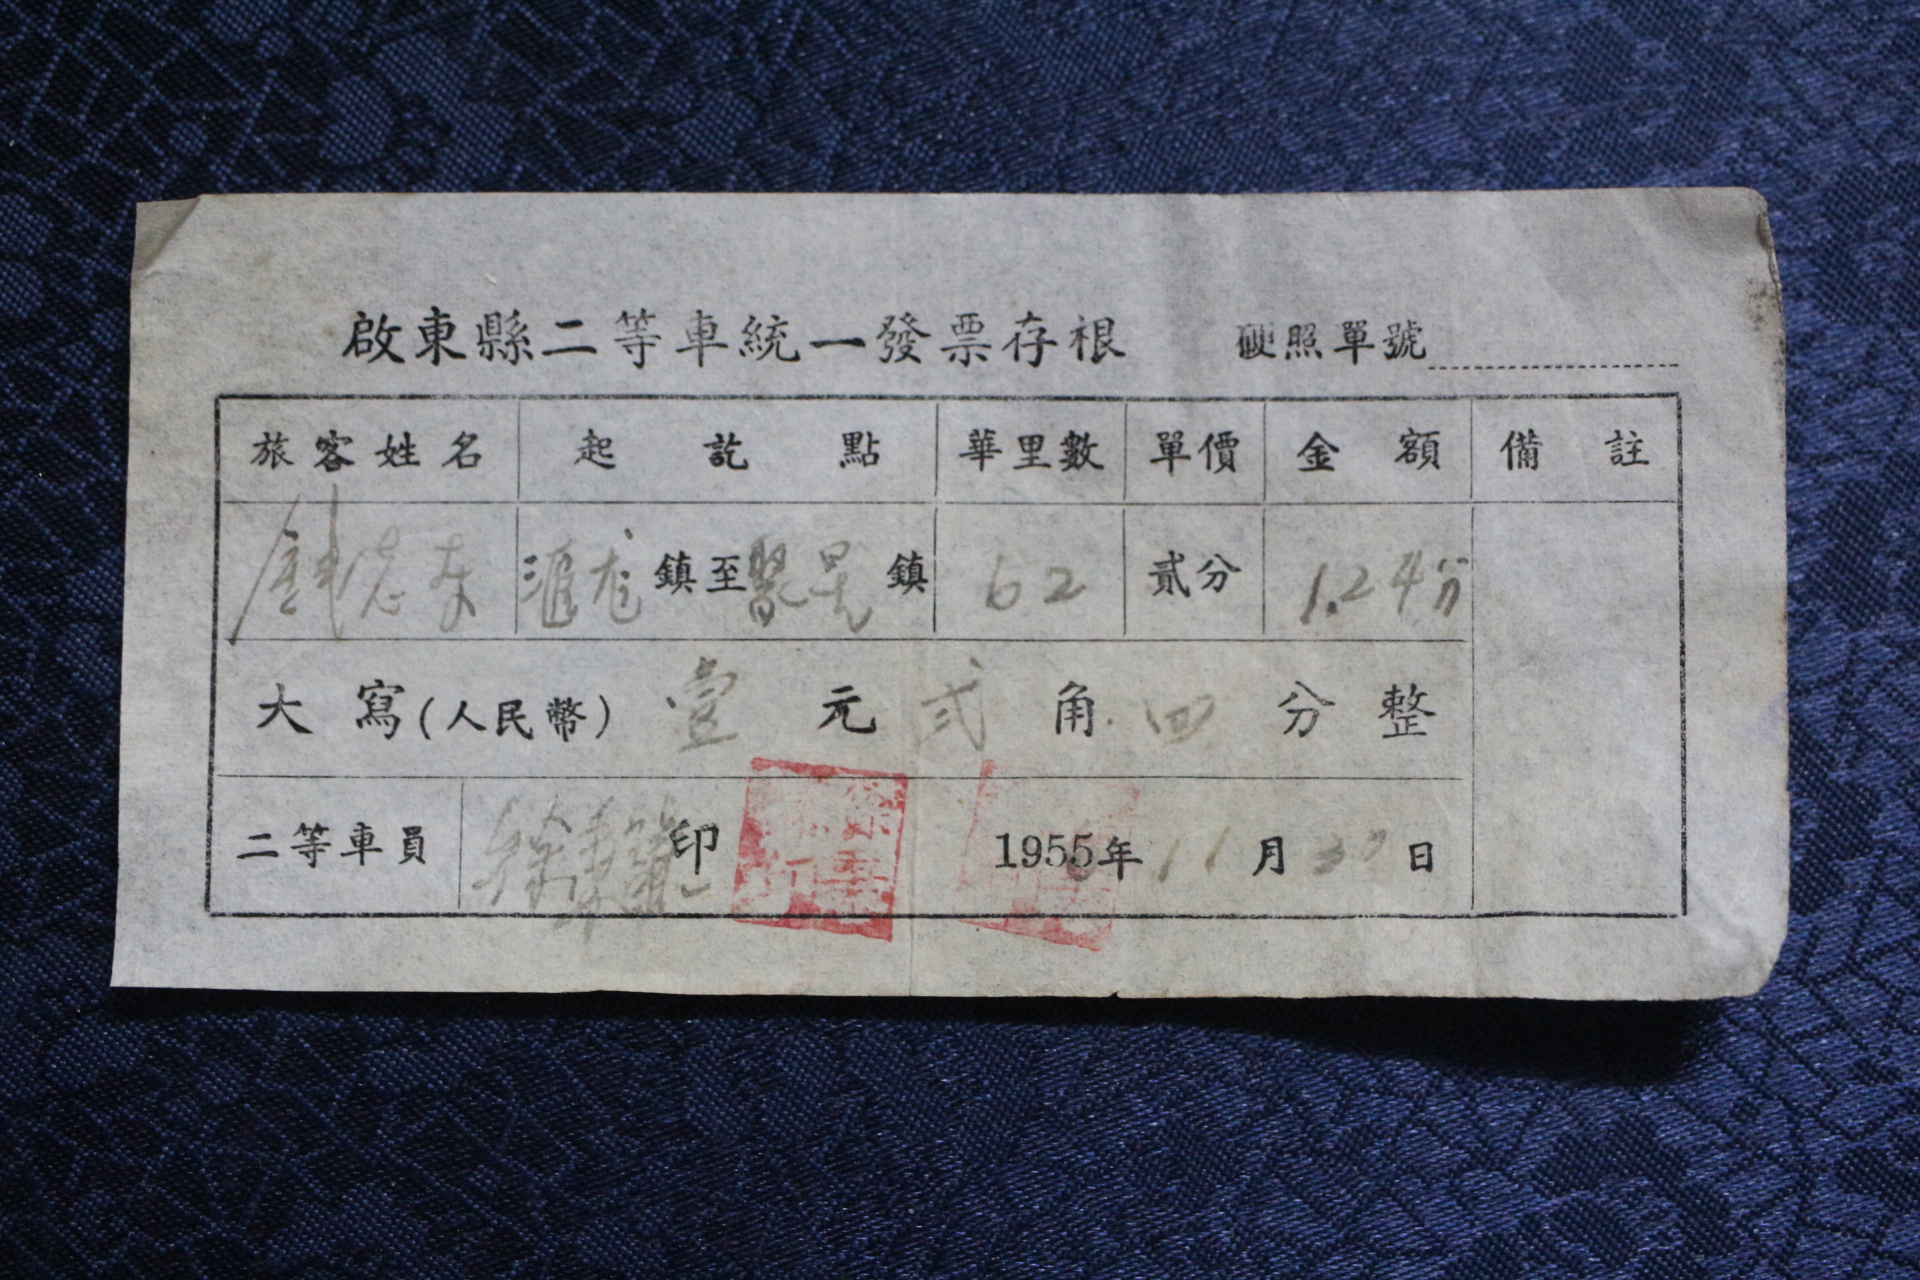 啟東縣二等車統一發票存根 硬照單號
旅客姓名 起訖點 華里數 單價 金額 備註
錢志東 匯龙鎮至聚星鎮 62 貳分 1.24分
大寫(人民幣) 壹元弍角四分整
二等車員 徐 印 1955年11月30日